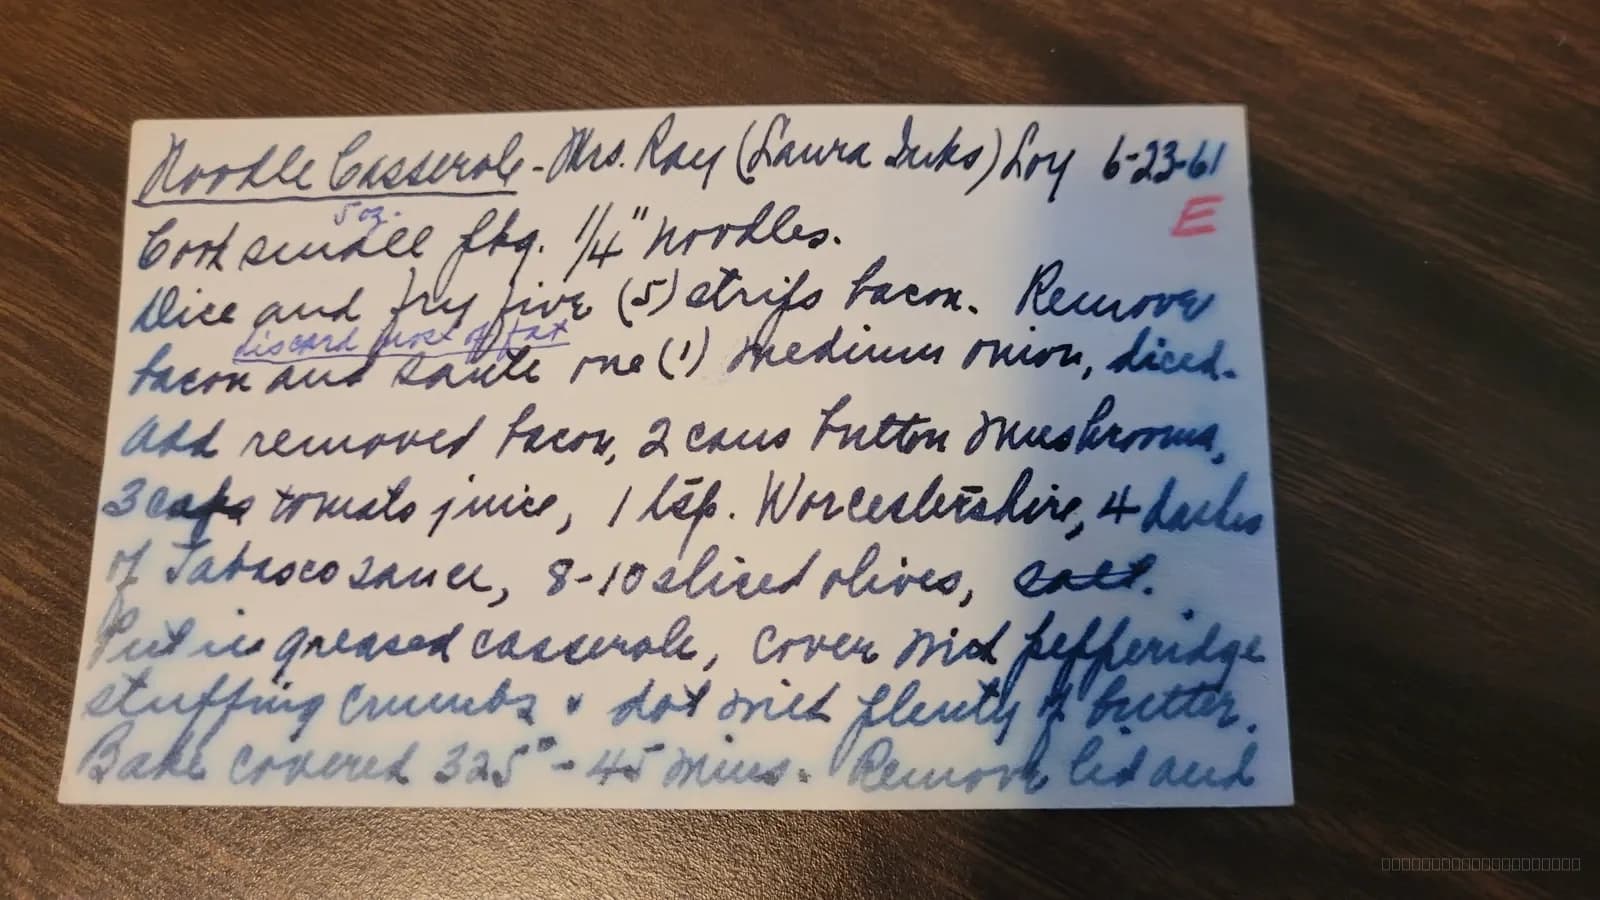 Noodle Casserole - Mrs. Ray (Laura Inks) Loy 6-23-61
E
5 oz.
Cook small pkg. 1/4" noodles.
Dice and fry five (5) strips bacon. Remove
discard most of fat
bacon and saute one (1) medium onion, diced.
Add removed bacon, 2 cans button mushrooms,
3 cups tomato juice, 1 tsp. Worcestershire, 4 dashes
of Tabasco sauce, 8-10 sliced olives, salt.
Put in greased casserole, cover with pepperidge
stuffing crumbs & dot with plenty of butter.
Bake covered 325° - 45 mins. Remove lid and